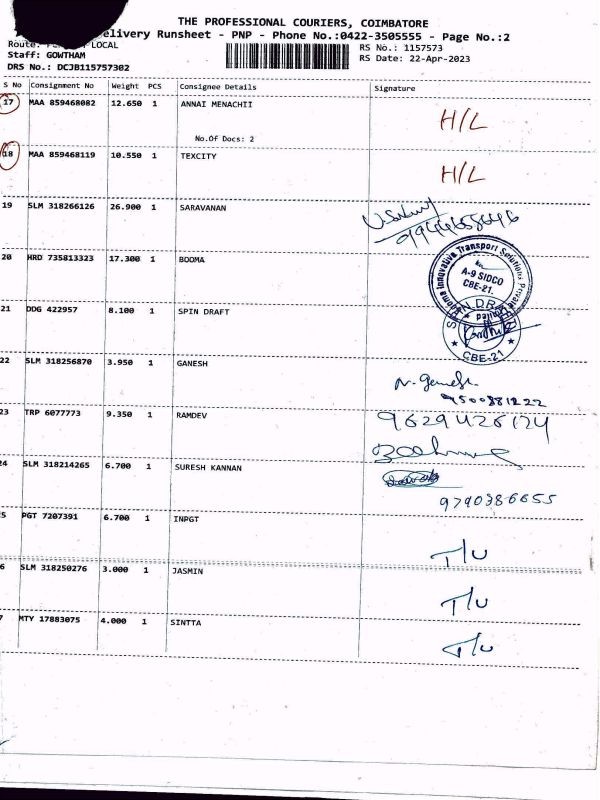 THE PROFESSIONAL COURIERS, COIMBATORE
elivery Runsheet - PNP - Phone No.:0422-3505555 - Page No.:2
Route: LOCAL
RS No.: 1157573
Staff: GOWTHAM
RS Date: 22-Apr-2023
DRS No.: DCJB115757302
S No Consignment No Weight PCS Consignee Details Signature
17 MAA 859468082 12.650 1 ANNAI MENACHII H/L
No.Of Docs: 2
18 MAA 859468119 10.550 1 TEXCITY H/L
19 SLM 318266126 26.900 1 SARAVANAN
20 HRD 735813323 17.300 1 BOOMA
Innovative Transport Solutions Private Limited
A-9 SIDCO
CBE-21.
21 DDG 422957 8.100 1 SPIN DRAFT
CBE-21
22 SLM 318256870 3.950 1 GANESH
N. Ganesh
9500881222
23 TRP 6077773 9.350 1 RAMDEV 9629426174
24 SLM 318214265 6.700 1 SURESH KANNAN
9790386655
5 PGT 7207391 6.700 1 INPGT T/U
6 SLM 318250276 3.000 1 JASMIN T/U
7 MTY 17883075 4.000 1 SINTTA T/U